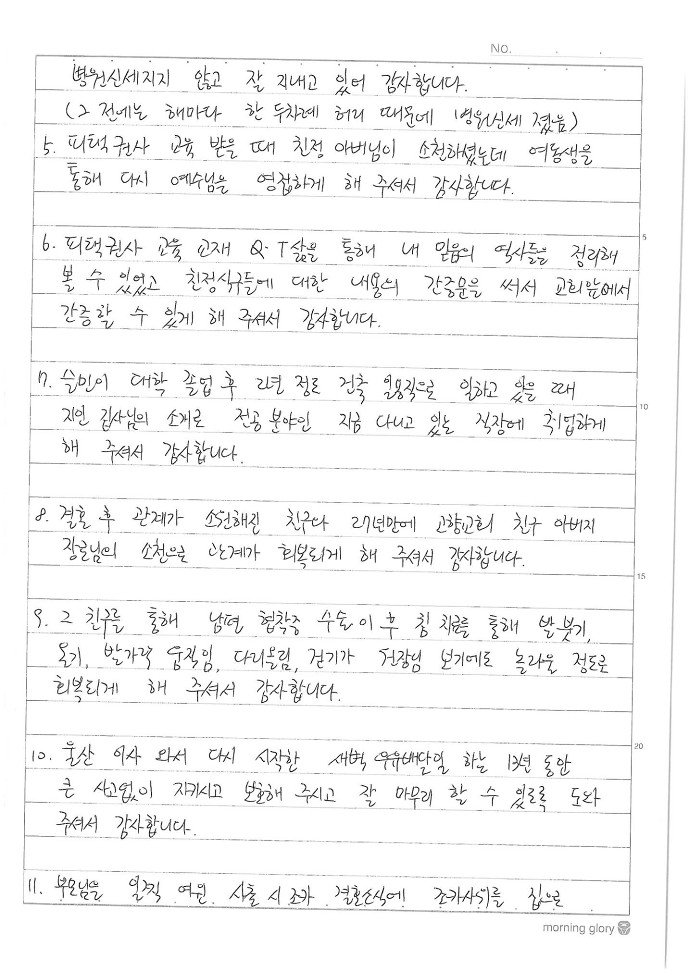 No. . .
병원신세지지 않고 잘 지내고 있어 감사합니다.
(그 전에는 해마다 한 두차례 허리 때문에 병원신세 졌음)
5. 피택권사 교육 받을 때 친정 아버님이 소천하셨는데 여동생을
통해 다시 예수님을 영접하게 해 주셔서 감사합니다.
5
6. 피택권사 교육 교재 Q.T삶을 통해 내 믿음의 역사들을 정리해
볼 수 있었고 친정식구들에 대한 내용의 간증문을 써서 교회앞에서
간증할 수 있게 해 주셔서 감사합니다.
7. 승민이 대학 졸업 후 2년 정도 건축 일용직으로 일하고 있을 때
10
지인 집사님의 소개로 전공 분야인 지금 다니고 있는 직장에 취업하게
해 주셔서 감사합니다.
8. 결혼 후 관계가 소원해진 친구와 27년만에 고향교회 친구 아버지
장로님의 소천으로 관계가 회복되게 해 주셔서 감사합니다.
15
9. 그 친구를 통해 남편 협착증 수술이후 침 치료를 통해 발 붓기,
온기, 발가락 움직임, 다리올림, 걷기가 원장님 보기에도 놀라울 정도로
회복되게 해 주셔서 감사합니다.
20
10. 울산 이사 와서 다시 시작한 새벽 우유배달일 하는 13년 동안
큰 사고없이 지키시고 보호해 주시고 잘 마무리 할 수 있도록 도와
주셔서 감사합니다.
11. 부모님을 일찍 여윈 시골 시조카 결혼소식에 조카사위를 집으로
morning glory